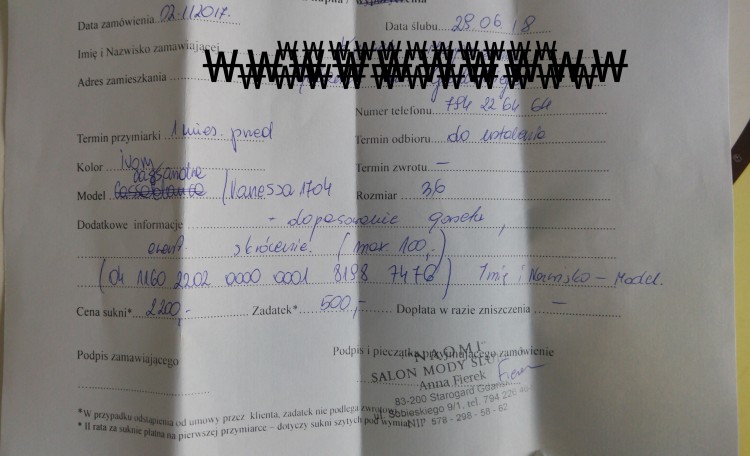 Data zamówienia 02.11.2017r. Data ślubu 28 06 18
Imię i Nazwisko zamawiającej
Adres zamieszkania
Numer telefonu 794 22 64 64
Termin przymiarki 1 mies. przed Termin odbioru do ustalenia
Kolor ivory Termin zwrotu –
cassandra
Model /Vanessa 1704 Rozmiar 36
Dodatkowe informacje - dopasowanie gorsetu,
ewent. skrócenie. (max 100,-)
(04 1160 2202 0000 0001 8198 7476) Imię i Nazwisko – Model.
Cena sukni* 2200,- Zadatek* 500,- Dopłata w razie zniszczenia –
Podpis zamawiającego Podpis i pieczątka przyjmującego zamówienie
NAOMI
SALON MODY
Anna Fierek
83-200 Starogard
ul. Sobieskiego 9/1, tel. 794 226
NIP 578 - 298 - 58 - 62
*W przypadku odstąpienia od umowy przez klienta, zadatek nie podlega zwrotowi
* II rata za suknie płatna na pierwszej przymiarce – dotyczy sukni szytych pod wymiar